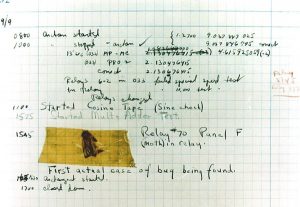 9/9
0800 Antan started
1000 " stopped - antan ✓
{ 1.2700 9.037 847 025
9.037 846 995 correct
13" UC (032) MP - MC
(033) PRO 2 2.130476415
correct 2.130676415
Relays 6-2 in 033 failed special speed test
in relay
Relays changed
1100 Started Cosine Tape (Sine check)
1525 Started Multi Adder Test.
1545 Relay #70 Panel F
(moth) in relay.
First actual case of bug being found.
antangent started.
1700 closed down.